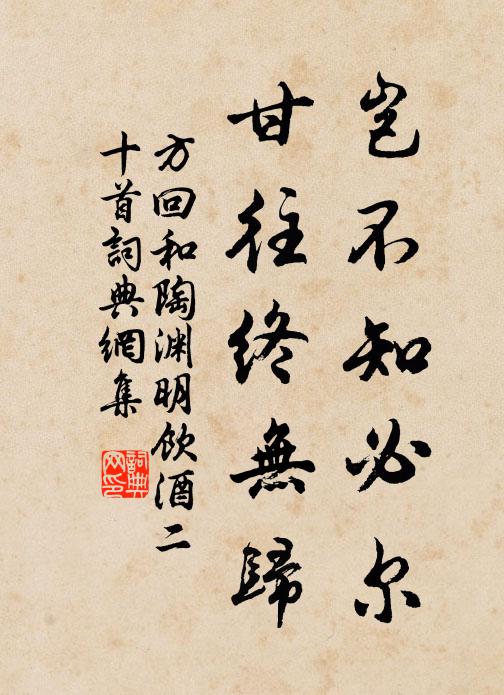 豈不知必尔
甘往終無歸
方回和陶渊明飲酒二
十首詞典網集
詞典
网印